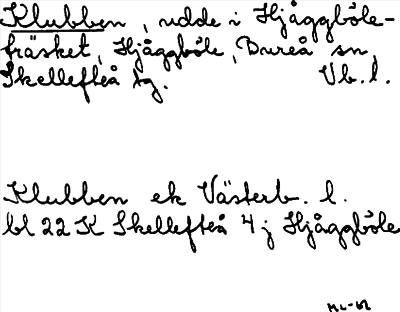 Klubben, udde i Hjåggböle-
träsket, Hjåggböle, Bureå sn,
Skellefteå tg. Vb. l.
Klubben ek Västerb. l.
bl 22 K Skellefteå 4 j Hjåggböle
ML-62